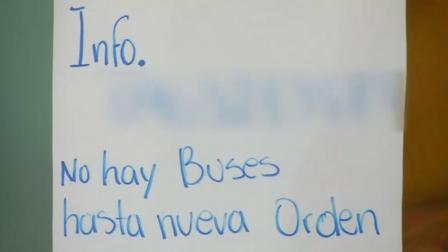 Info.
No hay Buses
hasta nueva Orden